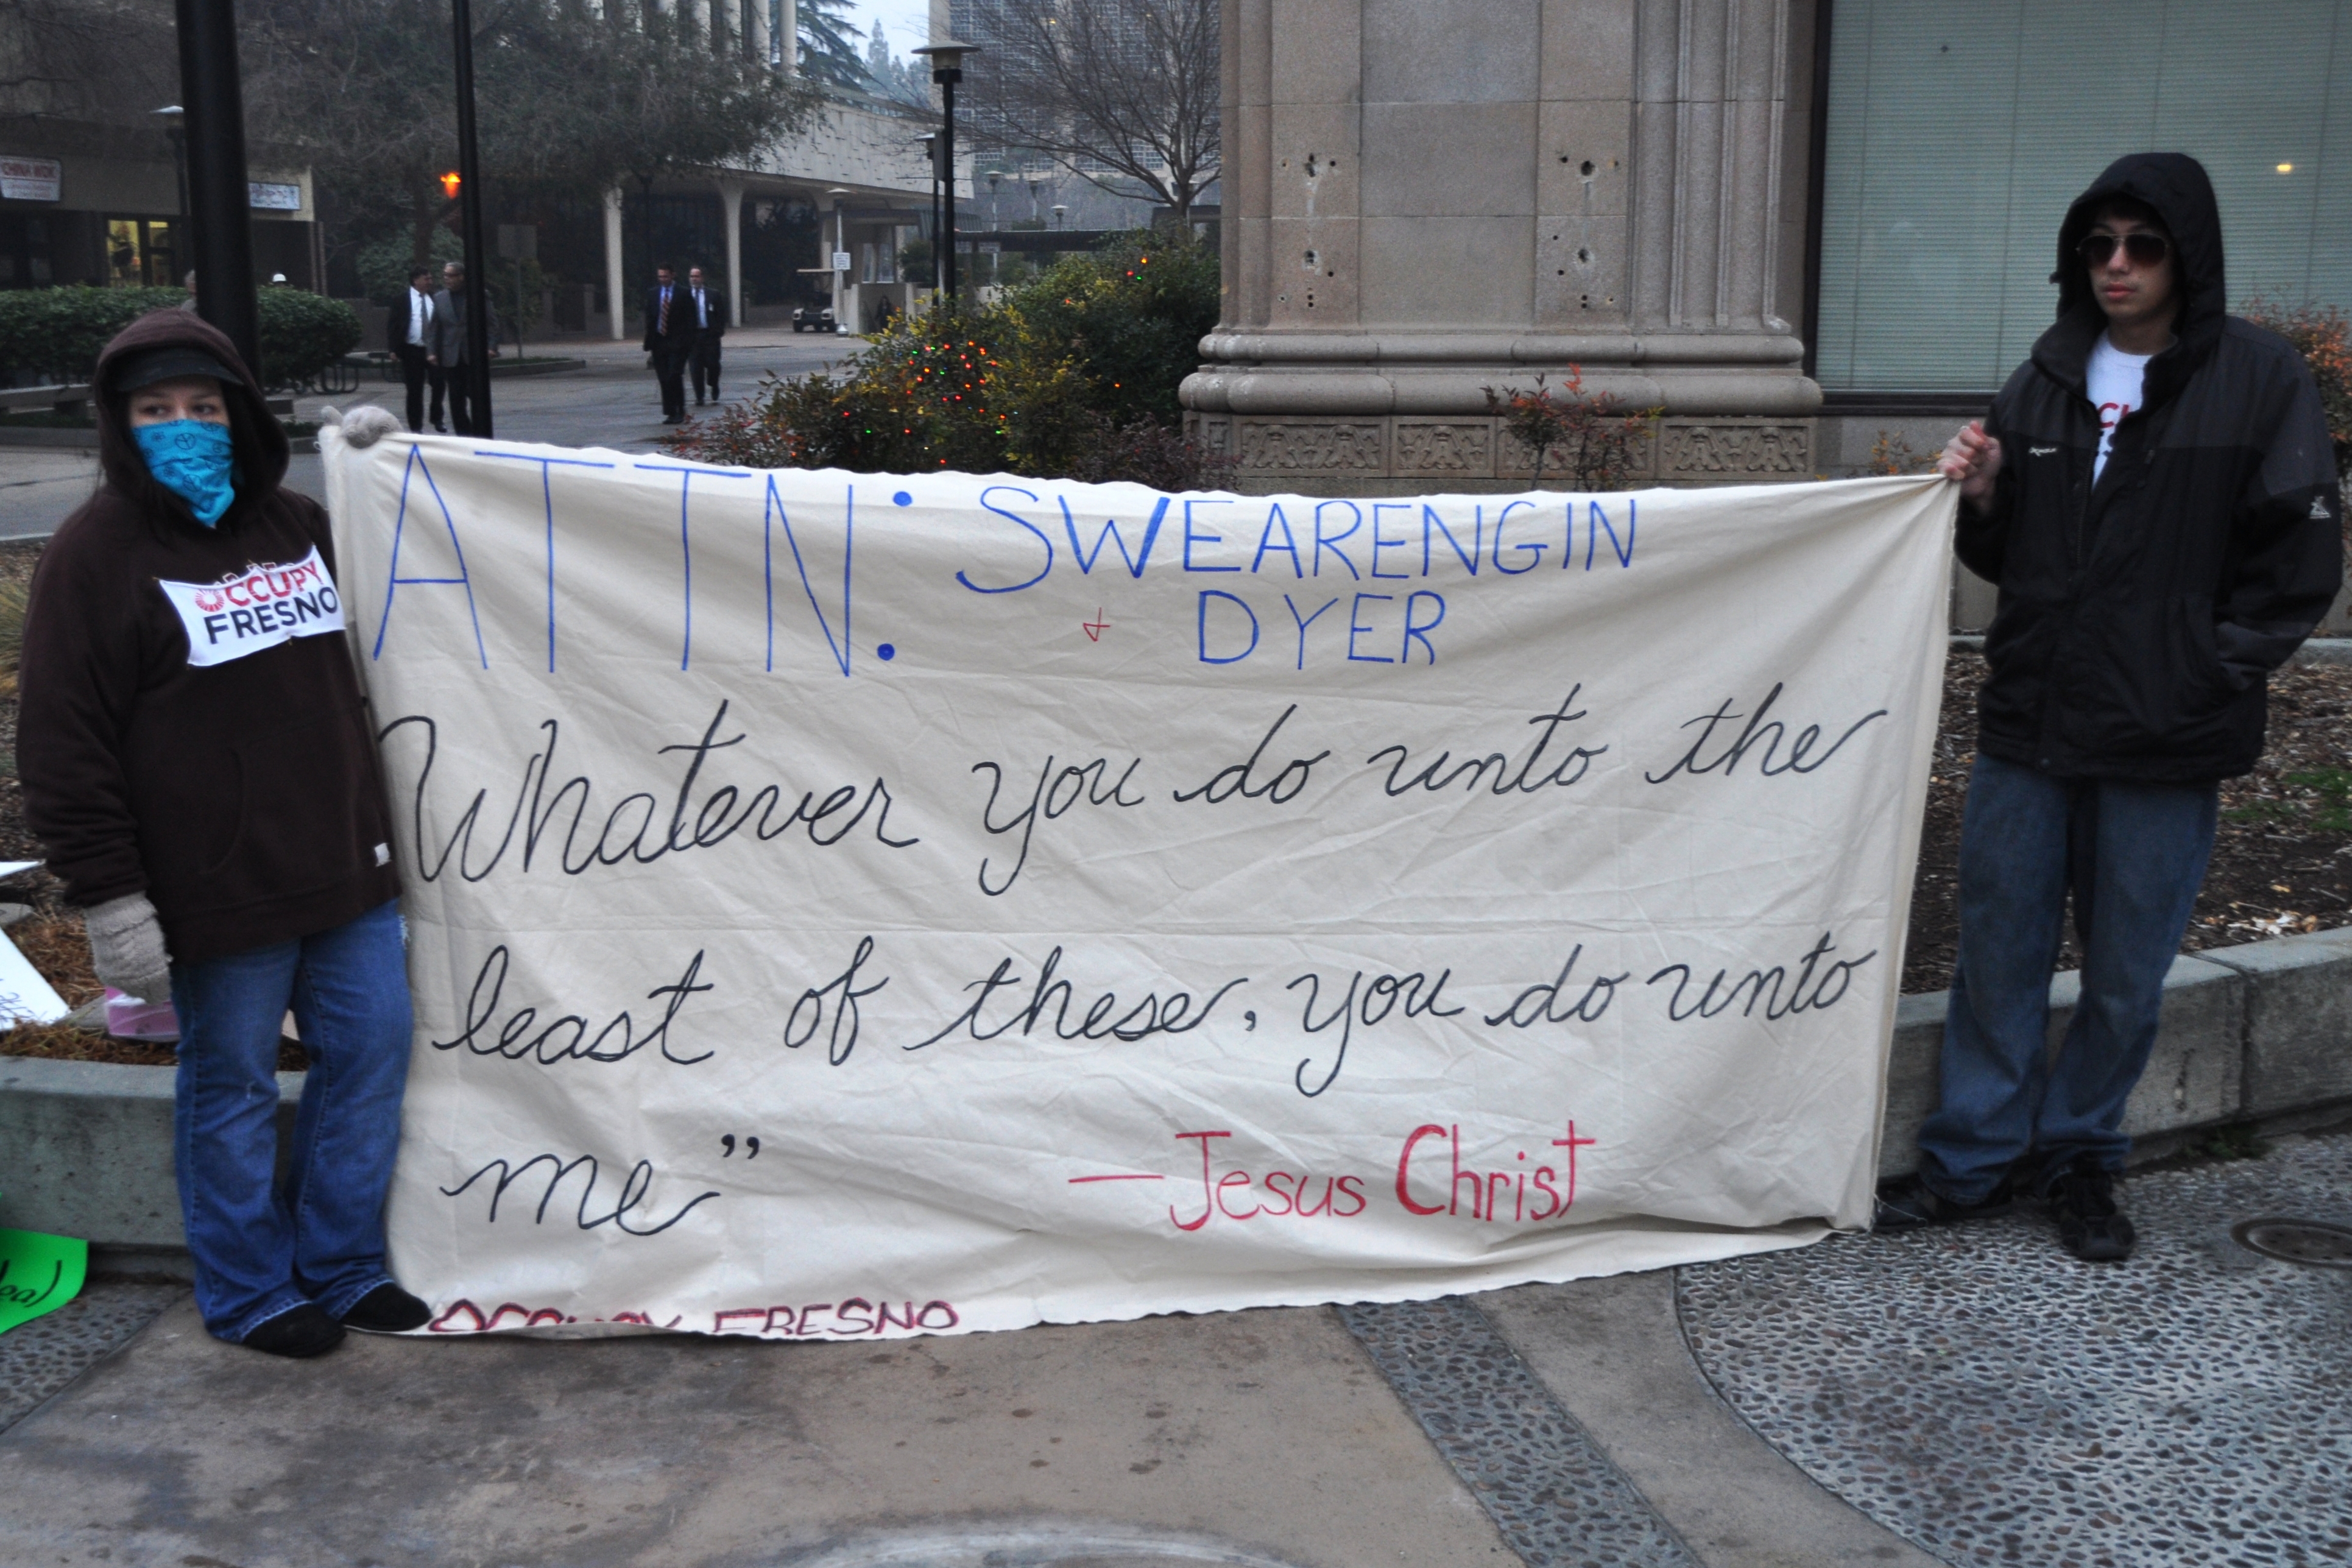 CHINA WOK
OCCUPY
FRESNO
ATTN: SWEARENGIN
+ DYER
Whatever you do unto the
least of these, you do unto
me”
—Jesus Christ
OCCUPY FRESNO